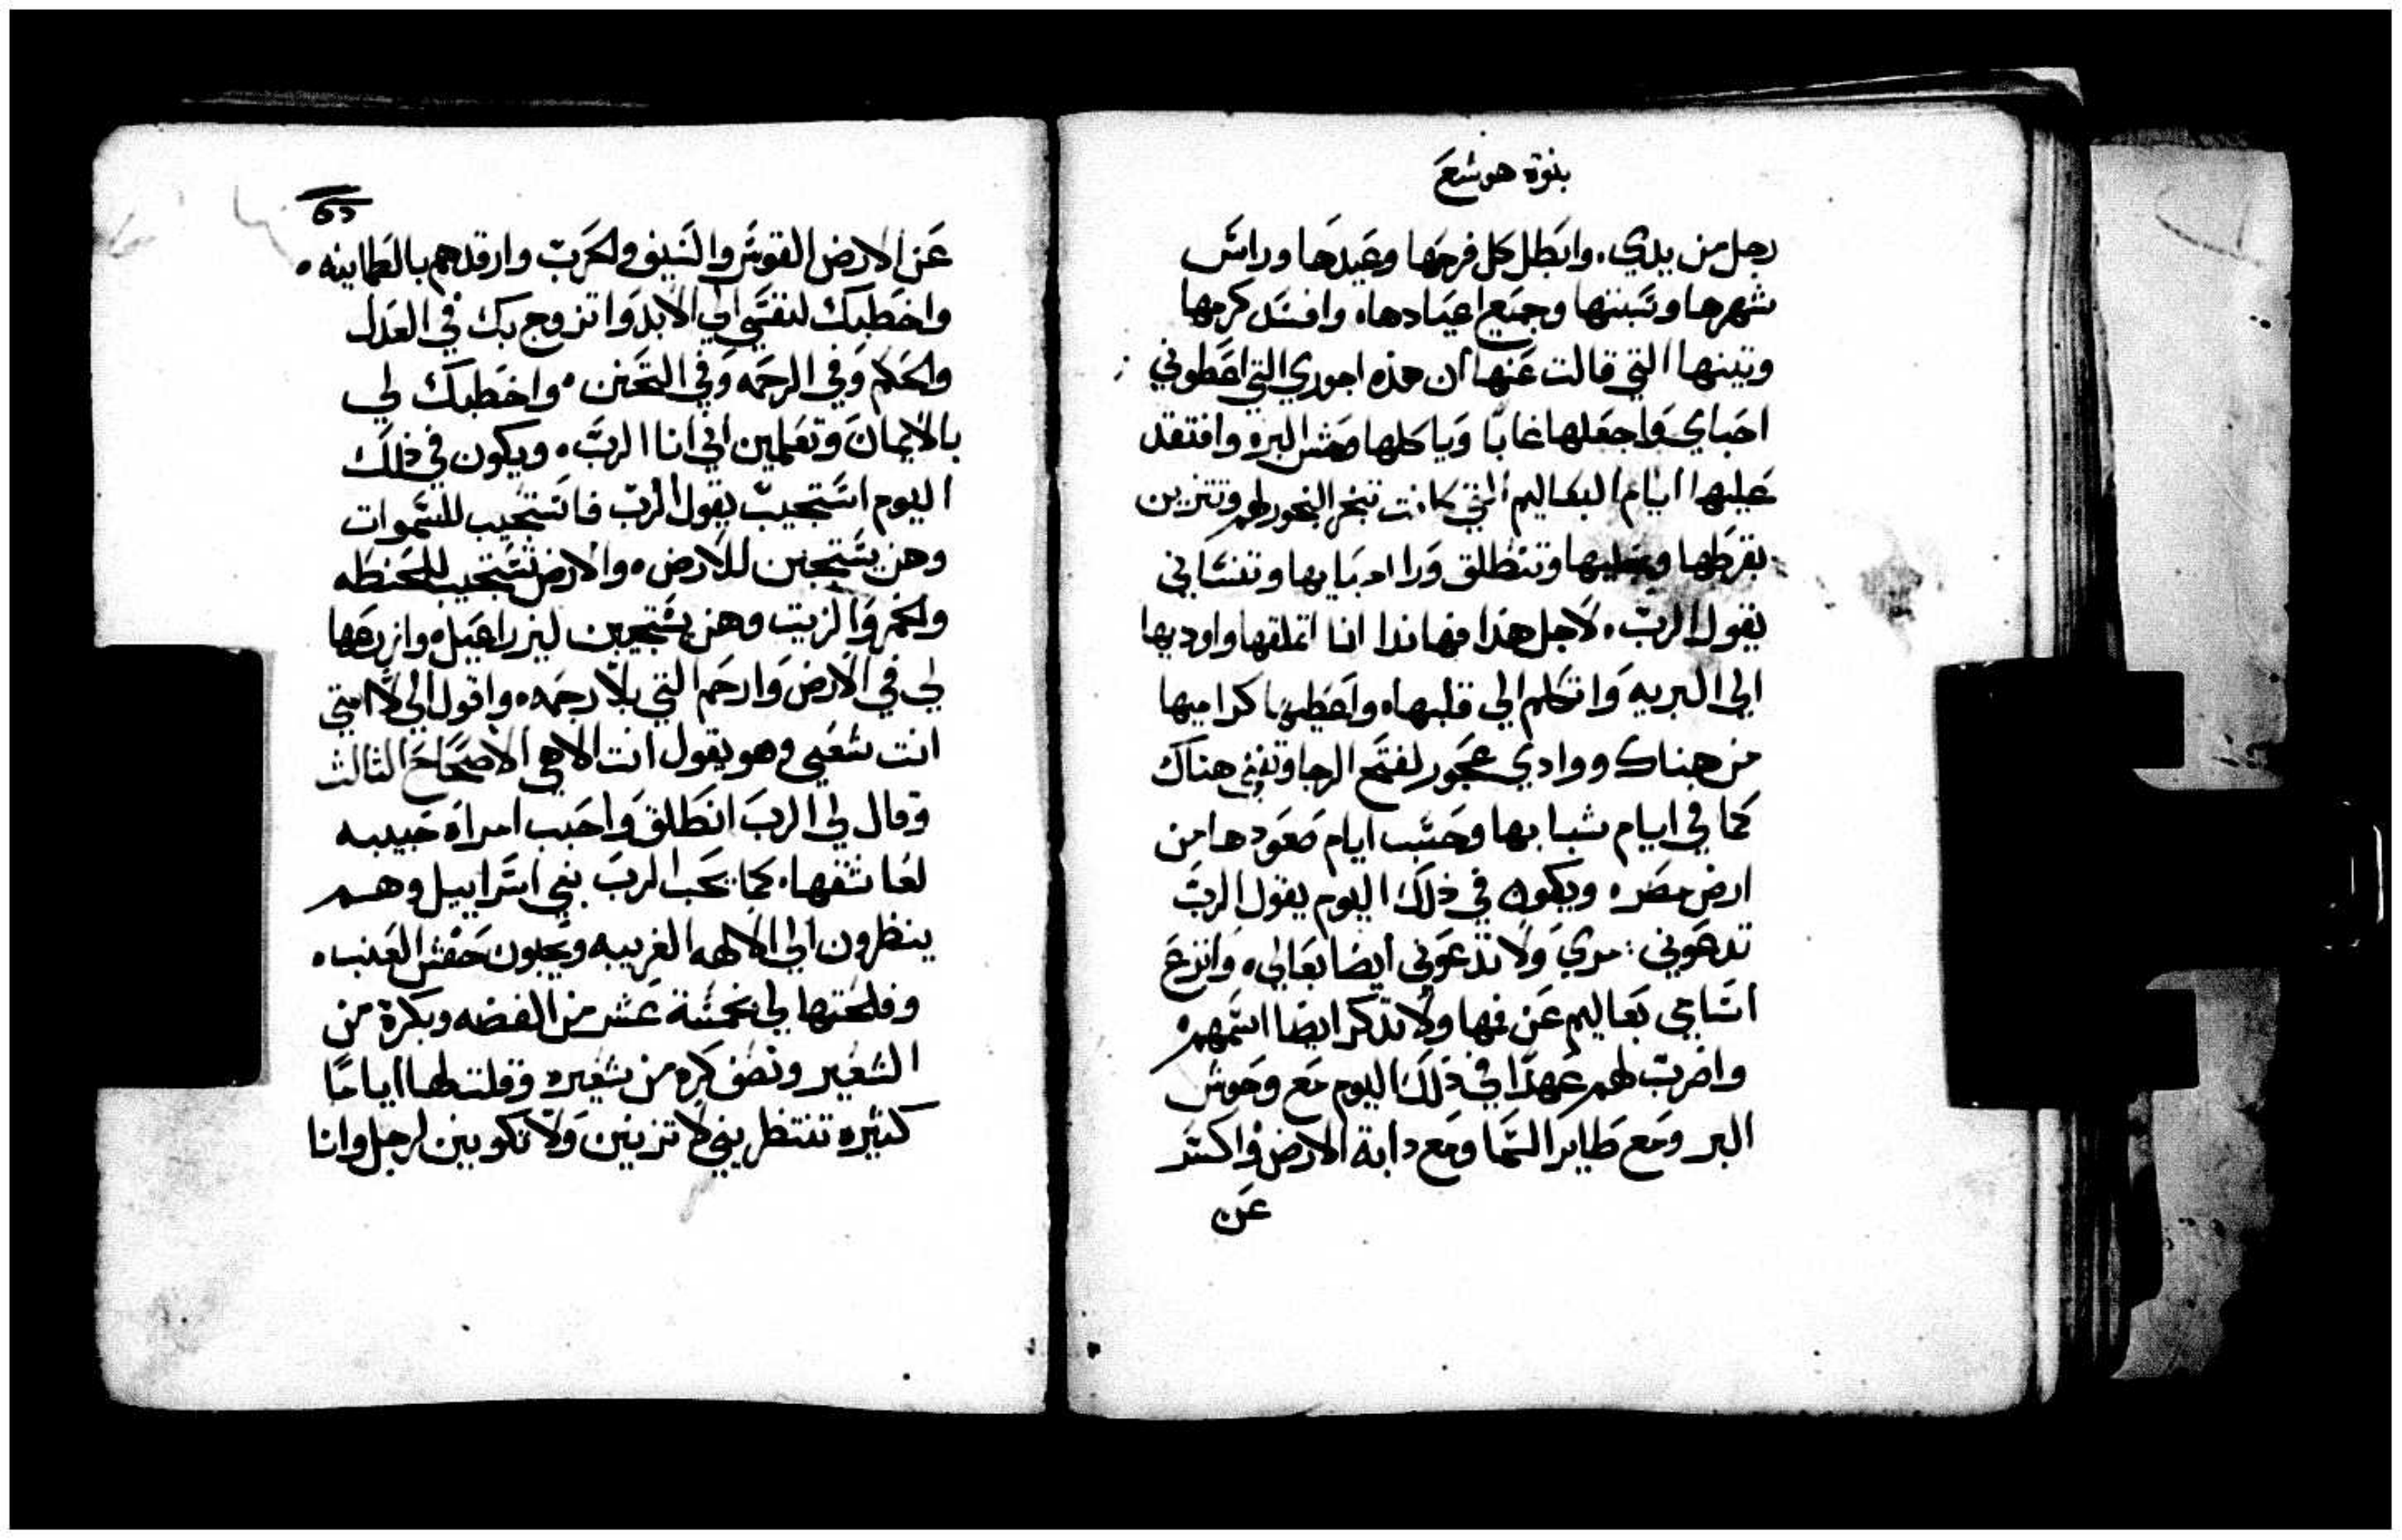 بنوة هوشع
رجل من يدي. وابطل كل فرحها وعيدها وراس
شهرها وسبتها وجميع اعيادها. وافسد كرمها
وتينها التي قالت عنها ان هذه اجوري التي اعطوني
احباي واجعلها غابا وياكلها وحش البره وافتقد
عليها ايام البعاليم التي كانت تبخر البخور لهم وتتزين
بقرطها وحليها وتنطلق ورا احبابها وتنساني
يقول الرب. لاجل هذا فهانذا انا اتملقها واوديها
الي البريه واتكلم الي قلبها. واعطيها كراميها
من هناك ووادي عجور لفتح الرجا وتغني هناك
كما في ايام شبابها وحسب ايام صعودها من
ارض مصر. ويكون في ذلك اليوم يقول الرب
تدعوني: مري ولا تدعوني ايضا بعالي. وانزع
اسامي بعاليم عن فمها ولا تذكر ايضا اسمهم
واضرب لهم عهدا في ذلك اليوم مع وحوش
البر ومع طاير السما ومع دابة الارض واكسر
عن
عن الارض القوس والسيف والحرب وارقدهم بالطمانينه.
واخطبك لنفسي الي الابد واتزوج بك في العدل
والحكم وفي الرحمه وفي التحنن. واخطبك لي
بالايمان وتعلمين اني انا الرب. ويكون في ذلك
اليوم استجيب يقول الرب فاستجيب للسموات
وهن يستجبن للارض. والارض تستجيب للحنطه
والخمر والزيت وهن يستجيبن ليزراعيل. وازرعها
لي في الارض وارحم التي بلا رحمه. واقول الي لا امتي
انت شعبي وهو يقول انت الاهي الاصحاح الثالث
وقال لي الرب انطلق واحبب امراه حبيبه
لعاشقها. كما يحب الرب بني اسراييل وهم
ينظرون الي الالهه الغريبه ويحبون حفش العنب.
وفلحتها لي بخمسة عشر من الفضه وبكرة من
الشعير ونصف كره من شعيره وقلت لها اياما
كثيره تنتظريني لا تزنين ولا تكونين لرجل وانا